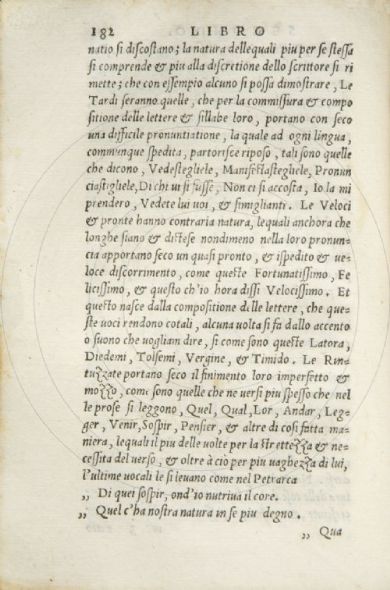 182 LIBRO
natio si discostano; la natura dellequali piu per se stessa
si comprende & piu alla discretione dello scrittore si ri
mette; che con essempio alcuno si possa dimostrare, Le
Tardi seranno quelle, che per la commissura & compo
sitione delle lettere & sillabe loro, portano con seco
una difficile pronuntiatione, la quale ad ogni lingua,
communque spedita, partorisce riposo, tali sono quelle
che dicono, Vedestegliele, Manifestastegliele, Pronun
ciastigliele, Di chi ui si fusse, Non ci si accosta, Io la mi
prendero, Vedete lui uoi, & simiglianti. Le Veloci
& pronte hanno contraria natura, lequali anchora che
longhe siano & distese nondimeno nella loro pronun
cia apportano seco un quasi pronto, & ispedito & ue-
loce discorrimento, come queste Fortunatissimo, Fe
licissimo, & questo ch'io hora dissi Velocissimo. Et
questo nasce dalla compositione di le lettere, che que-
ste uoci rendono cotali, alcuna uolta si fa dallo accento
o suono che uogliam dire, si come sono queste Latora,
Diedemi, Tolsemi, Vergine, & Timido. Le Rin-
tuzzate portano seco il finimento loro imperfetto &
mozzo, come sono quelle che ne uersi piu spesso che nel
le prose si leggono, Quel, Qual, Lor, Andar, Leg-
ger, Venir, Sospir, Pensier, & altre di cosi fatta ma-
niera, lequali il piu delle uolte per la strettezza & ne-
cessita del uerso, & oltre à ciò per piu uaghezza di lui,
l'ultime uocali le si leuano come nel Petrarca
,, Di quei sospir, ond'io nutriua il core.
,, Quel c'ha nostra natura in se piu degno.
,, Qua